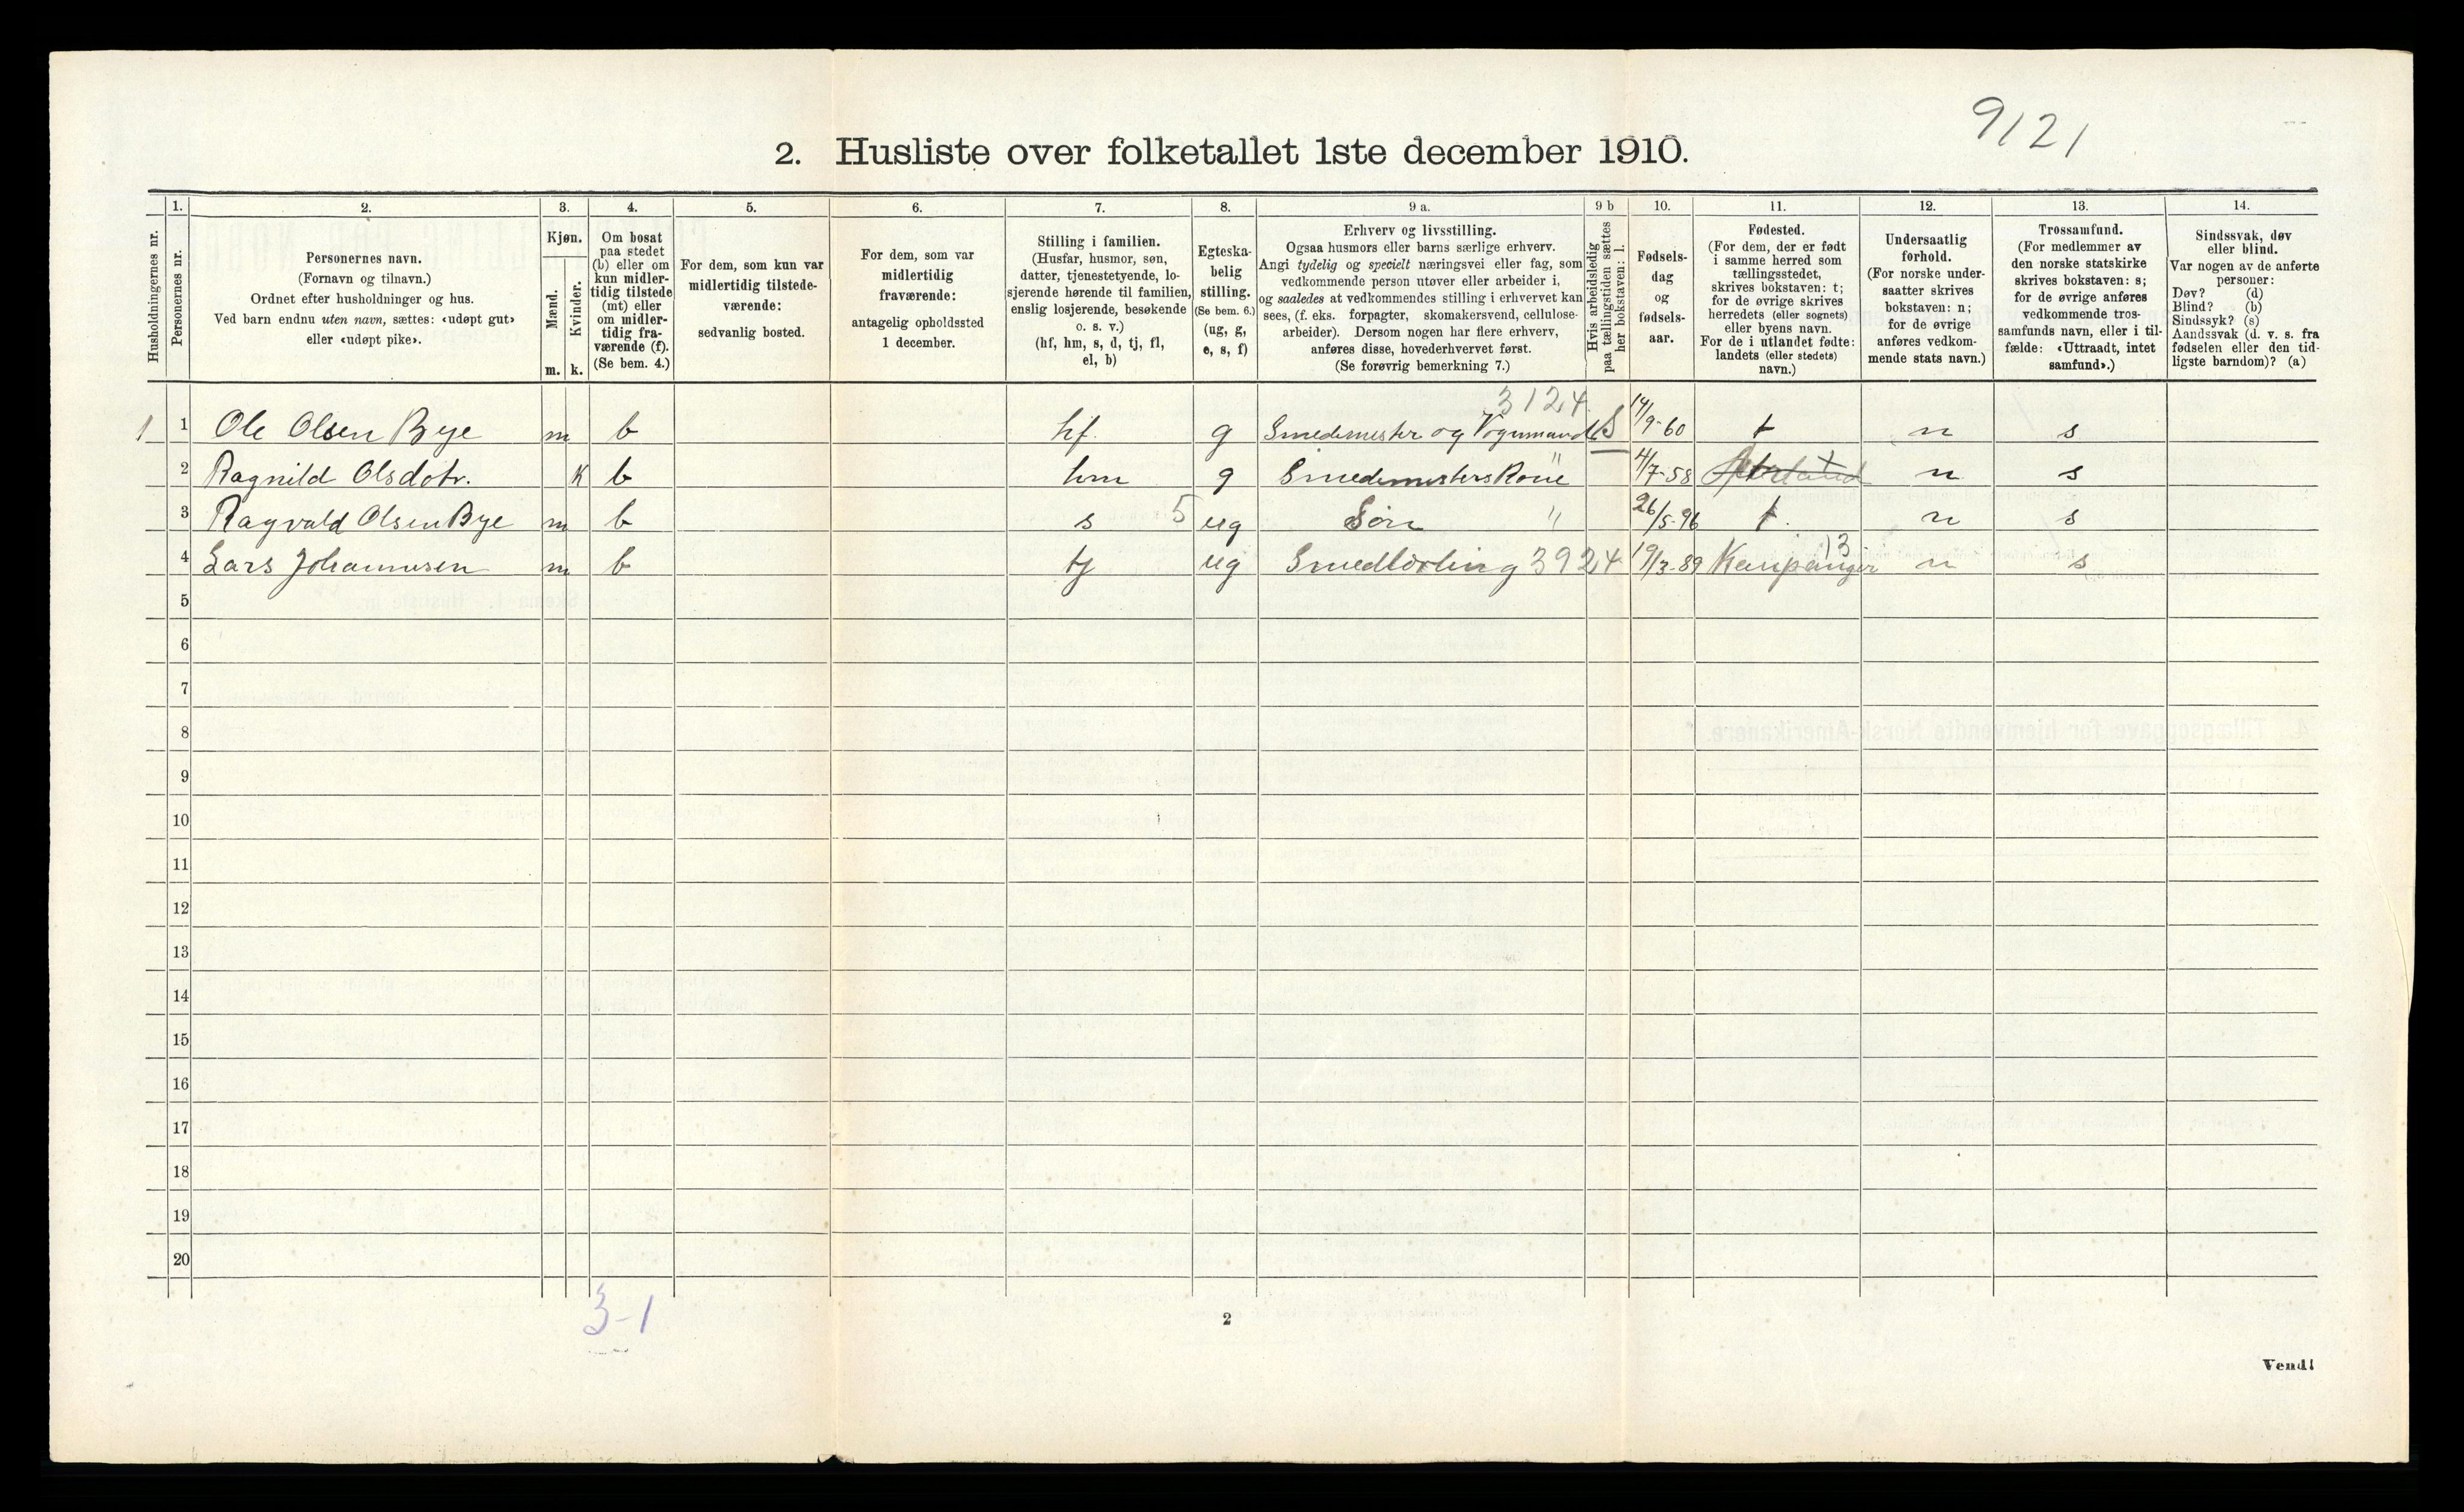 9121
2. Husliste over folketallet 1ste december 1910.
Husholdningernes nr.
1. Personernes nr.
2. Personernes navn. (Fornavn og tilnavn.) Ordnet efter husholdninger og hus. Ved barn endnu uten navn, sættes: «udøpt gut» eller «udøpt pike».
3. Kjøn. Mænd. m. Kvinder. k.
4. Om bosat paa stedet (b) eller om kun midler-tidig tilstede (mt) eller om midler-tidig fra-værende (f). (Se bem. 4.)
5. For dem, som kun var midlertidig tilstede-værende: sedvanlig bosted.
6. For dem, som var midlertidig fraværende: antagelig opholdssted 1 december.
7. Stilling i familien. (Husfar, husmor, søn, datter, tjenestetyende, lo-sjerende hørende til familien, enslig losjerende, besøkende o. s. v.) (hf, hm, s, d, tj, fl, el, b)
8. Egteska-belig stilling. (Se bem. 6.) (ug, g, e, s, f)
9 a. Erhverv og livsstilling. Ogsaa husmors eller barns særlige erhverv. Angi tydelig og specielt næringsvei eller fag, som vedkommende person utøver eller arbeider i, og saaledes at vedkommendes stilling i erhvervet kan sees, (f. eks. forpagter, skomakersvend, cellulose-arbeider). Dersom nogen har flere erhverv, anføres disse, hovederhvervet først. (Se forøvrig bemerkning 7.)
9 b Hvis arbeidsledig paa tællingstiden sættes her bokstaven: l.
10. Fødsels-dag og fødsels-aar.
11. Fødested. (For dem, der er født i samme herred som tællingsstedet, skrives bokstaven: t; for de øvrige skrives herredets (eller sognets) eller byens navn. For de i utlandet fødte: landets (eller stedets) navn.)
12. Undersaatlig forhold. (For norske under-saatter skrives bokstaven: n; for de øvrige anføres vedkom-mende stats navn.)
13. Trossamfund. (For medlemmer av den norske statskirke skrives bokstaven: s; for de øvrige anføres vedkommende tros-samfunds navn, eller i til-fælde: «Uttraadt, intet samfund».)
14. Sindssvak, døv eller blind. Var nogen av de anførte personer: Døv? (d) Blind? (b) Sindssyk? (s) Aandssvak (d. v. s. fra fødselen eller den tid-ligste barndom)? (a)
3124
1 1 Ole Olsen Bye m b hf. g Smedemester og Vognmand S 14/9-60 t n s
2 Ragnild Olsdotr. k b hm g Smedemesters Kone " 4/7-58 t n s
3 Ragvald Olsen Bye m b s 5 ug Søn " 26/5-96 t. n s
4 Lars Johannesen m b tj ug Smedlærling 3924 19/3-89 Kaupanger 13 n s
5
6
7
8
9
10
11
12
13
14
15
16
17
18
19
20
3-1
2
Vend!